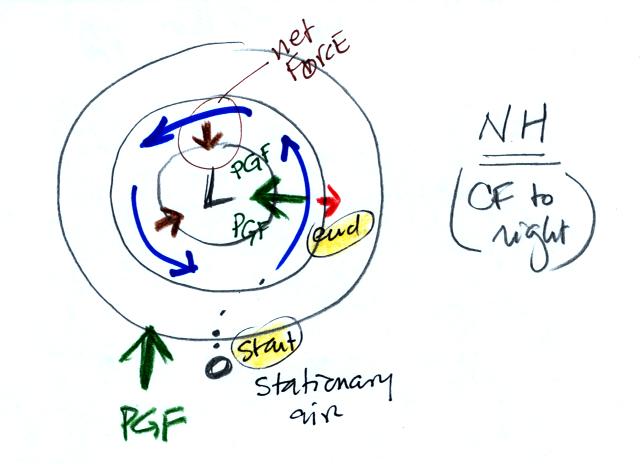 net
FORCE
NH
(CF to
right)
PGF
L
PGF
end
start
stationary
air
PGF